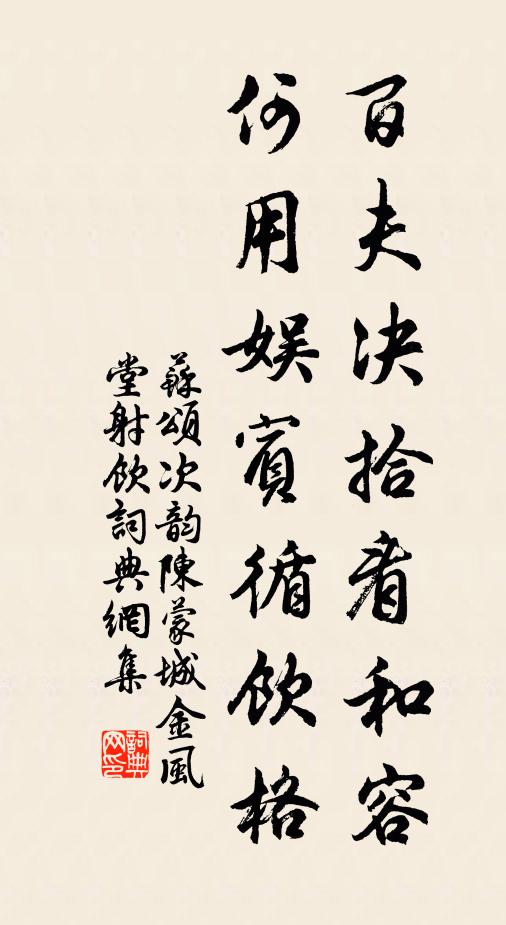 百夫决拾看和容
何用娱賓循飲格
蘇頌次韵陳蒙城金風
堂射飲詞典網集
詞典网印